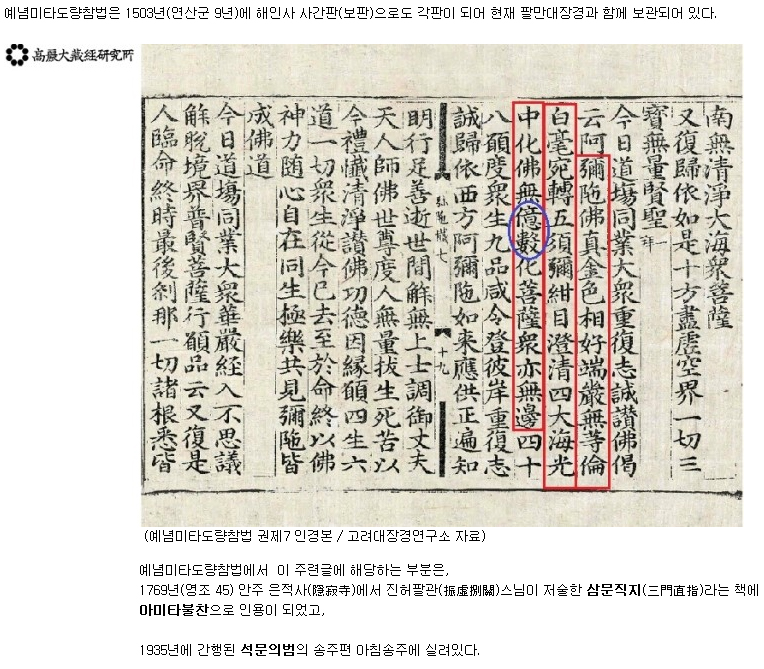 예념미타도량참법은 1503년(연산군 9년)에 해인사 사간판(보판)으로도 각판이 되어 현재 팔만대장경과 함께 보관되어 있다.
高麗大藏經硏究所
南無清淨大海衆菩薩
又復歸依如是十方盡虛空界一切三
寶無量賢聖 一拜
今日道場同業大衆重復志誠讃佛偈
云阿彌陁佛真金色相好端嚴無等倫
白毫宛轉五須彌紺目澄清四大海光
中化佛無億數化菩薩衆亦無邊四十
八願度衆生九品咸令登彼岸重復志
誠歸依西方阿彌陁如來應供正遍知
弥陁懺七 十九
明行足善逝世間解無上士調御丈夫
天人師佛世尊度人無量拔生死苦以
今禮懺清淨讃佛功德因緣願四生六
道一切衆生從今已去至於命終以佛
神力随心自在同生極樂共見彌陁皆
成佛道
今日道場同業大衆華嚴経入不思議
解脫境界普賢菩薩行願品云又復是
人臨命終時最後剎那一切諸根悉皆
(예념미타도량참법 권제7 인경본 / 고려대장경연구소 자료)
예념미타도량참법에서 이 주련글에 해당하는 부분은,
1769년(영조 45) 안주 은적사(隱寂寺)에서 진허팔관(振虛捌關)스님이 저술한 삼문직지(三門直指)라는 책에
아미타불찬으로 인용이 되었고,
1935년에 간행된 석문의범의 송주편 아침송주에 실려있다.